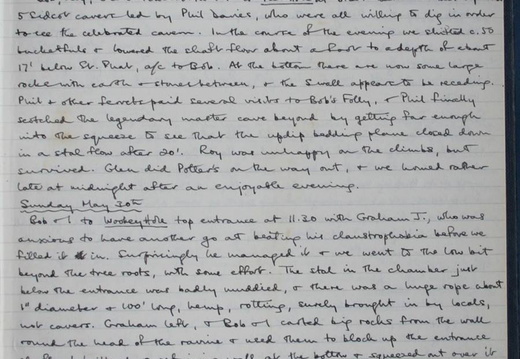 5 Sidcot cavers led by Phil Davies, who were all willing to dig in order
to see the celebrated cavern. In the course of the evening we shifted c.50
bucketfuls & lowered the shaft floor about a foot to a depth of about
17' below St. a/c to Bob. At the bottom there are now some large
rocks with earth & stones between, & the S wall appears to be receding.
Phil & other ferrets paid several visits to Bob's Folly, & Phil finally
scotched the legendary master cave beyond by getting far enough
into the squeeze to see that the updip bedding plane closed down
in a stal flow after 20'. Roy was unhappy on the climbs, but
survived. Glen did Potter's on the way out, & we homed rather
late at midnight after an enjoyable evening.
Sunday May 30th
Bob & I to Wookey Hole top entrance at 11.30 with Graham J., who was
anxious to have another go at beating his claustrophobia before we
filled it in. Surprisingly he managed it & we went to the low bit
beyond the tree roots, with some effort. The stal in the chamber just
below the entrance was badly muddied, & there was a huge rope about
1" diameter & 100' long, hemp, rotting, surely brought in by locals,
not cavers. Graham left, & Bob & I carted big rocks from the wall
round the head of the ravine & used them to block up the entrance
at the bottom & squeezed out over it